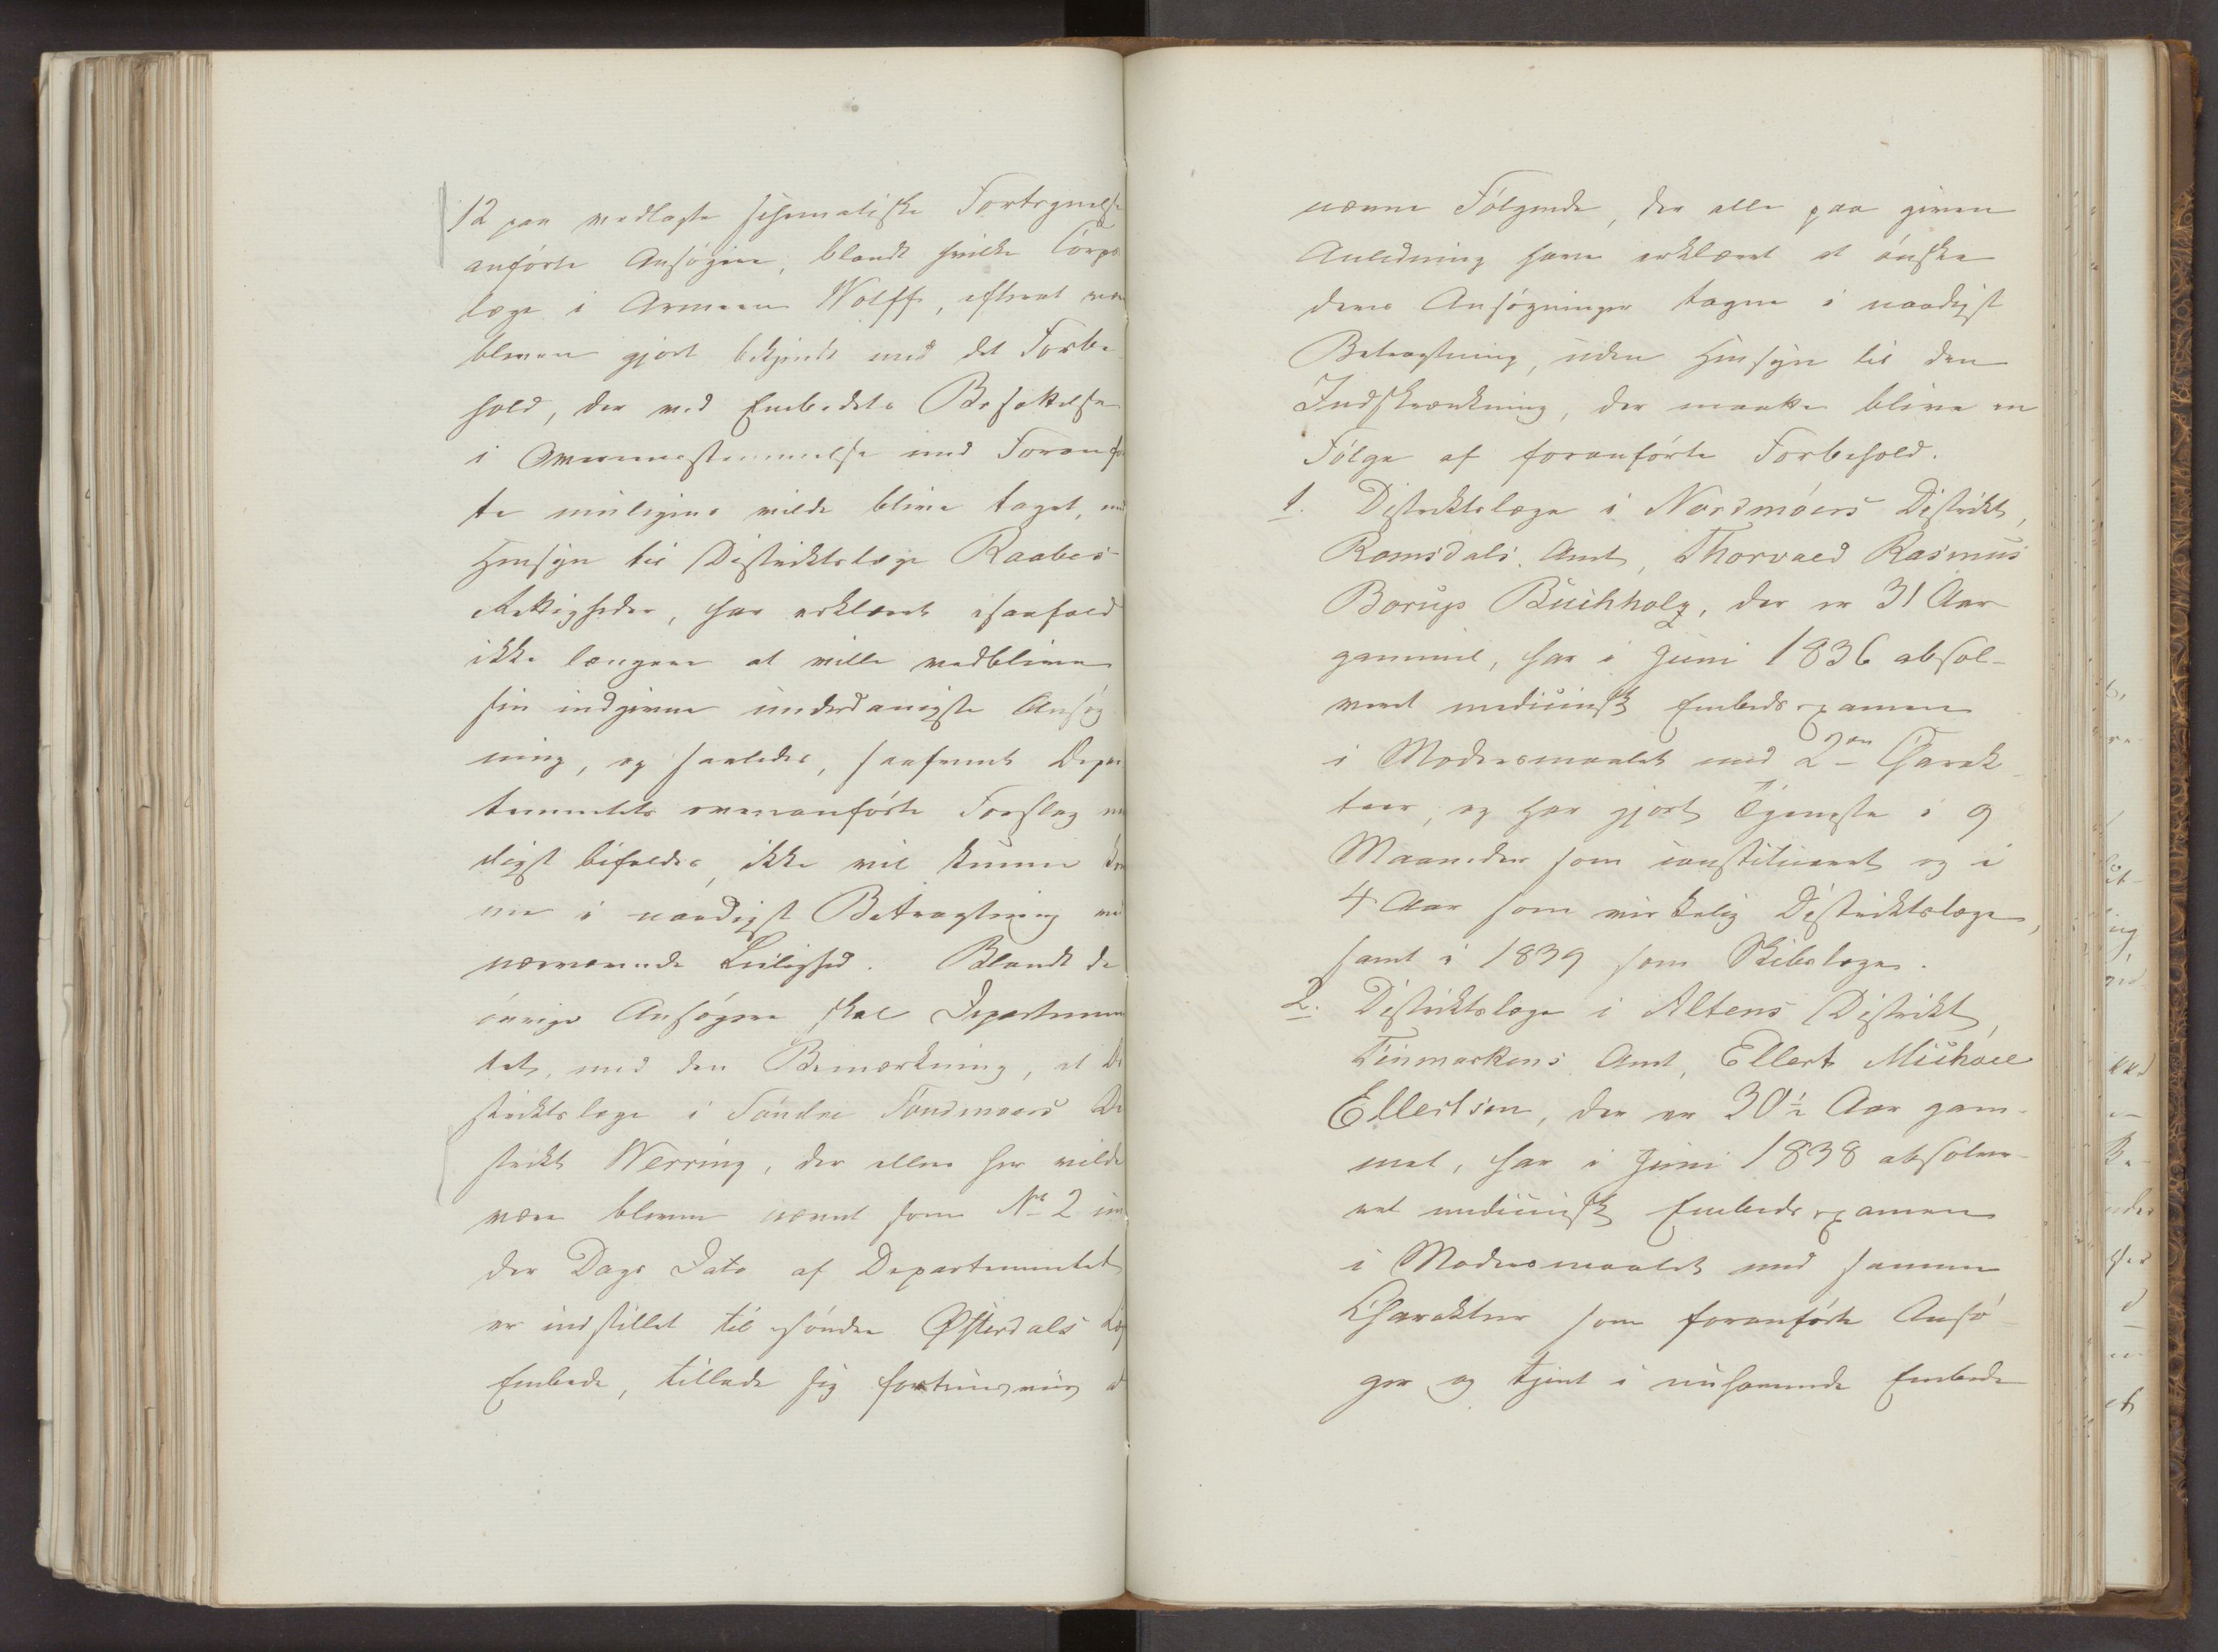 12 paa vedlagte schematiske Fortegnelse
anførte Ansøgere, blandt hvilke Corps
læge i Armeen Wolff, efterat være
bleven gjort bekjendt med det Forbe
hold, der ved Embedets Besættelse
i Overensstemmelse med Foranfø
te muligens vilde blive taget, med
Hensyn til Distriktslæge Raabes
Rettigheder, har erklæret isaafald
ikke længere at ville vedblive
sin indgivne underdanigste Ansøg
ning, og saaledes, saafremt Depar
tementets ovenanførte Forslag naa
digst bifaldes, ikke vil kunne kom
me i naadigst Betragtning ved
nærværende Leilighed. Blandt de
øvrige Ansøgere skal Departemen
tet, med den Bemærkning, at Di
striktslæge i Søndre Søndmøers Di
strikt Werring, der ellers her vilde
være bleven nævnt som No 2 un
der Dags Dato af Departementet
er indstillet til søndre Østerdals Læge
Embede, tillade sig fortrinsviis at
nævne Følgende, der alle paa given
Anledning have erklæret at ønske
deres Ansøgninger tagne i naadigst
Betragtning, uden Hensyn til den
Indskrænkning, der maatte blive en
Følge af foranførte Forbehold.
1. Distriktslæge i Nordmøers Distrikt,
Romsdals Amt, Thorvald Rasmus
Borup Buchholz, der er 31 Aar
gammel, har i Juni 1836 absol-
veret medicinsk Embedsexamen
i Modersmaalet med 2den Charak
teer, og har gjort Tjeneste i 9
Maaneder som constitueret og i
4 Aar som virkelig Distriktslæge,
samt i 1839 som Skibslæge.
2. Distriktslæge i Altens Distrikt,
Finmarkens Amt, Ellert Michael
Ellertsen, der er 30½ Aar gam-
mel, har i Juni 1838 absolve-
ret medicinsk Embedsexamen
i Modersmaalet med samme
Charakteer som foranførte Ansø-
ger og tjent i nuhavende Embede